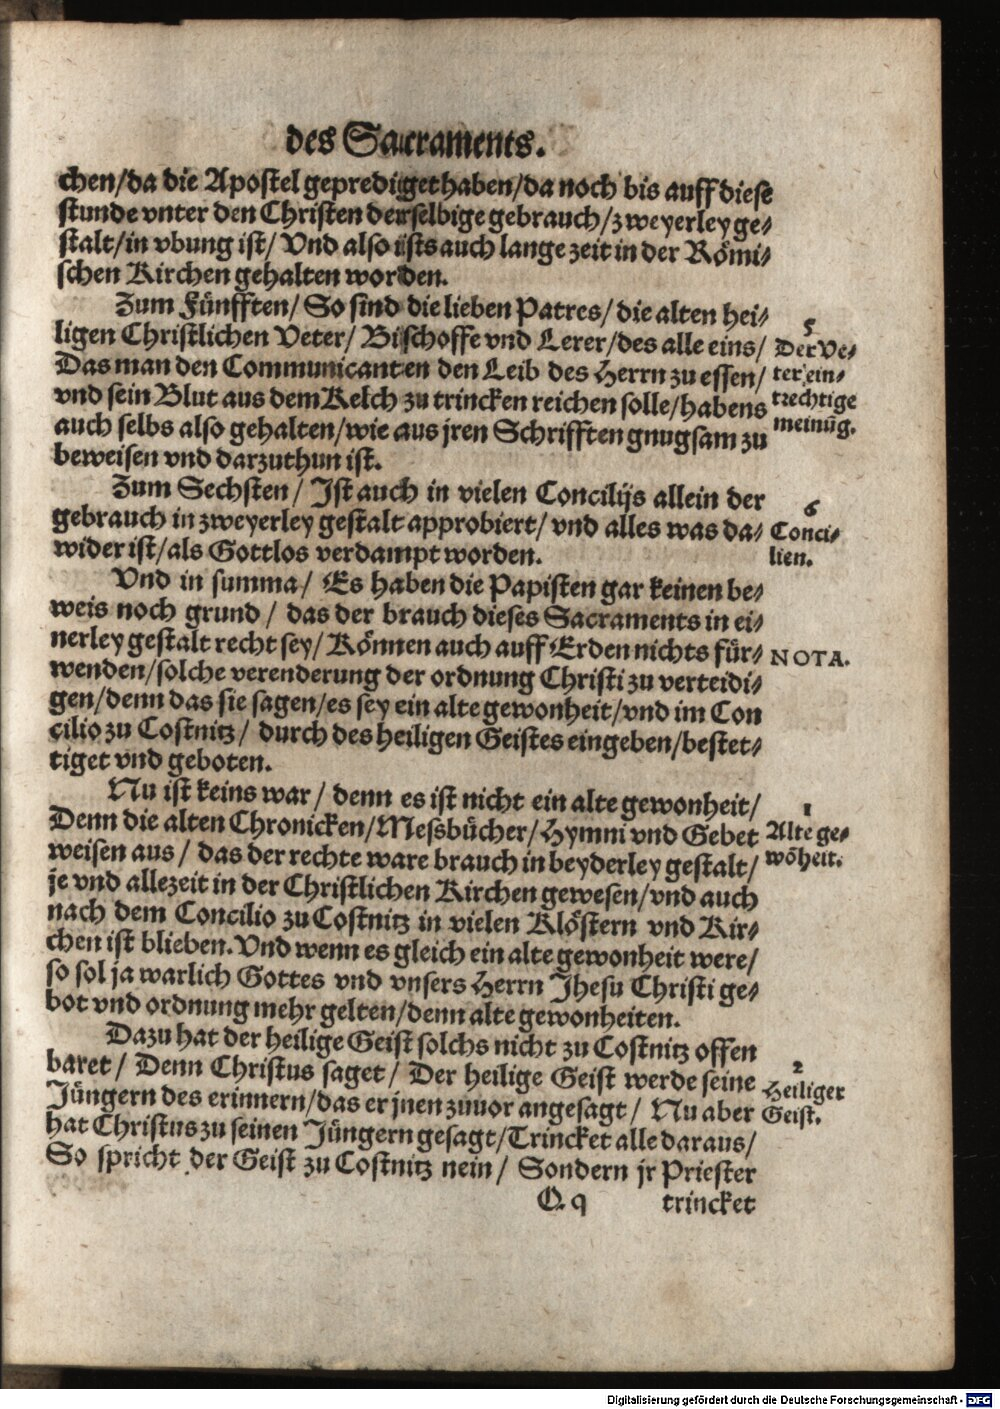 des Sacraments.
chen/da die Apostel geprediget haben/da noch bis auff diese
stunde vnter den Christen derselbige gebrauch/zweyerley ge⸗
stalt/in vbung ist/ Vnd also ists auch lange zeit in der Römi⸗
schen Kirchen gehalten worden.
Zum Fünfften/ So sind die lieben Patres/ die alten hei⸗
ligen Christlichen Veter/ Bischoffe vnd Lerer/des alle eins/
Das man den Communicanten den Leib des Herrn zu essen/
vnd sein Blut aus dem Kelch zu trincken reichen solle/habens
auch selbs also gehalten/wie aus jren Schrifften gnugsam zu
beweisen vnd darzuthun ist.
5
Der Ve⸗
ter ein⸗
trechtige
meinūg.
Zum Sechsten/ Ist auch in vielen Concilijs allein der
gebrauch in zweyerley gestalt approbiert/ vnd alles was da⸗
wider ist/als Gottlos verdampt worden.
6
Conci⸗
lien.
Vnd in summa/ Es haben die Papisten gar keinen be⸗
weis noch grund/ das der brauch dieses Sacraments in ei⸗
nerley gestalt recht sey/ Können auch auff Erden nichts für⸗
wenden/solche verenderung der ordnung Christi zu verteidi⸗
gen/denn das sie sagen/es sey ein alte gewonheit/vnd im Con
cilio zu Costnitz/ durch des heiligen Geistes eingeben/bestet⸗
tiget vnd geboten.
NOTA.
Nu ist keins war/ denn es ist nicht ein alte gewonheit/
Denn die alten Chronicken/Messbücher/Hymni vnd Gebet
weisen aus/ das der rechte ware brauch in beyderley gestalt/
je vnd allezeit in der Christlichen Kirchen gewesen/vnd auch
nach dem Concilio zu Costnitz in vielen Klöstern vnd Kir⸗
chen ist blieben. Vnd wenn es gleich ein alte gewonheit were/
so sol ja warlich Gottes vnd vnsers Herrn Jhesu Christi ge⸗
bot vnd ordnung mehr gelten/denn alte gewonheiten.
1
Alte ge⸗
wōheit.
Dazu hat der heilige Geist solchs nicht zu Costnitz offen
baret/ Denn Christus saget/ Der heilige Geist werde seine
Jüngern des erinnern/das er jnen zuuor angesagt/ Nu aber
hat Christus zu seinen Jüngern gesagt/Trincket alle daraus/
So spricht der Geist zu Costnitz nein/ Sondern jr Priester
2
Heiliger
Geist.
Q. q trincket
Digitalisierung gefördert durch die Deutsche Forschungsgemeinschaft - DFG